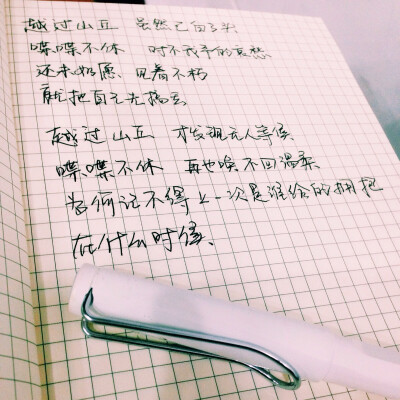 越过山丘 虽然已白了头
喋喋不休 时不我予的哀愁
还未如愿 见着不朽
就把自己先搞丢
越过山丘 才发现无人等候
喋喋不休 再也唤不回温柔
为何记不得上一次是谁给的拥抱
在什么时候